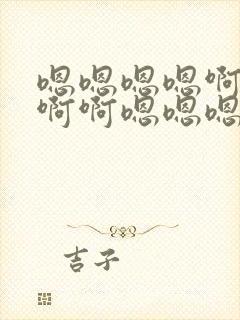 嗯嗯嗯嗯啊
啊啊嗯嗯嗯
吉子